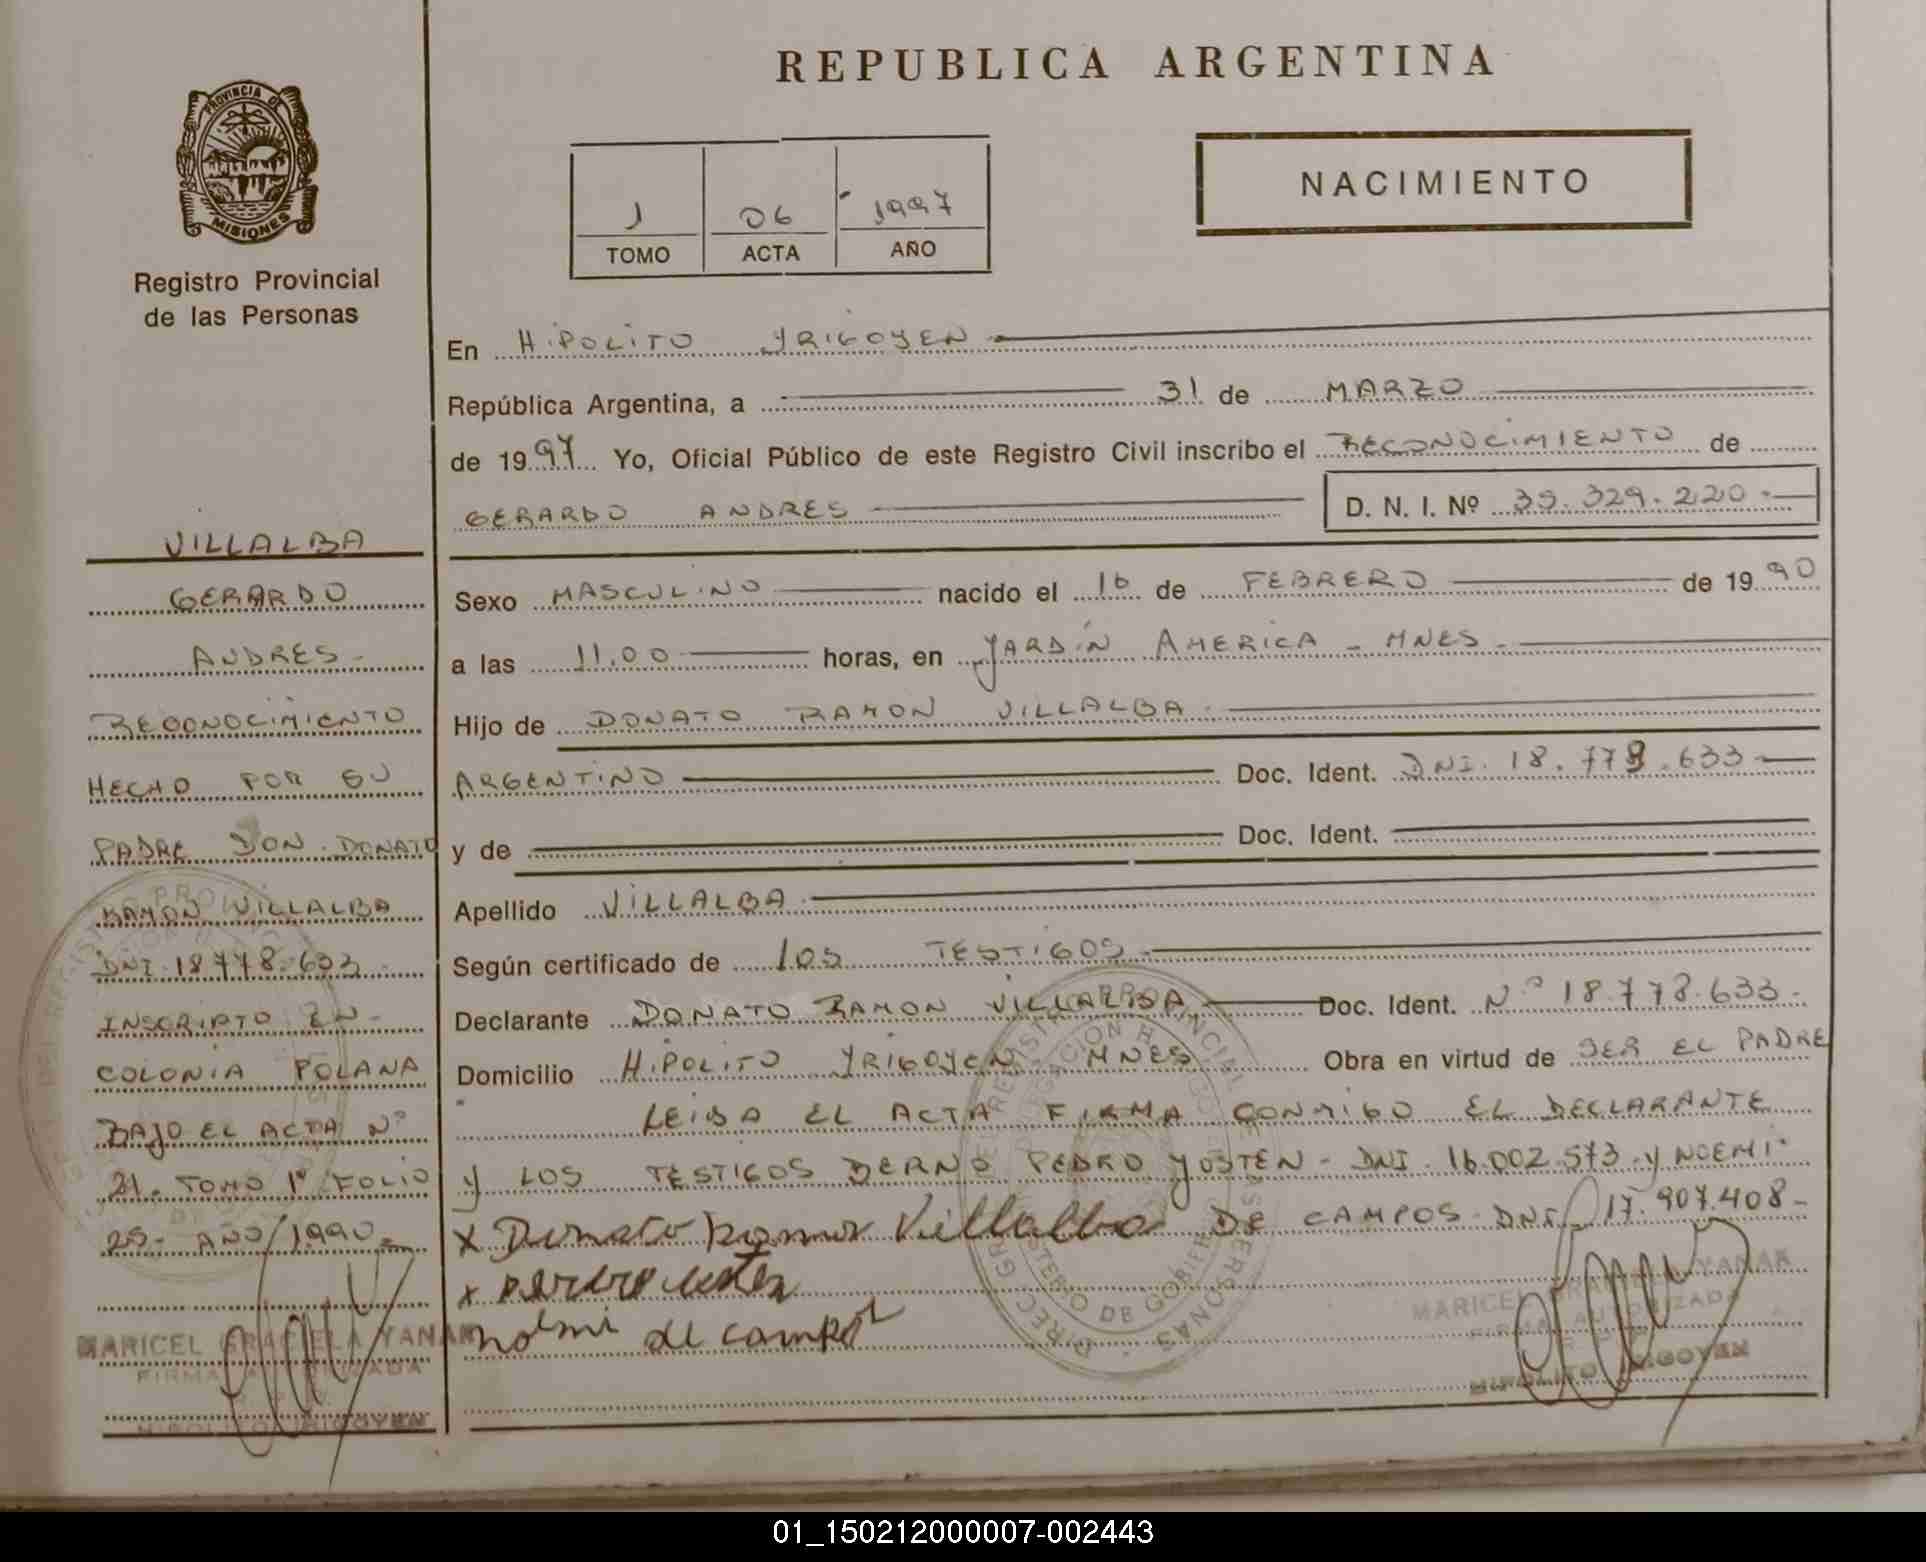 REPUBLICA ARGENTINA
PROVINCIA DE
MISIONES
Registro Provincial
de las Personas
1 06 1997
TOMO ACTA AÑO
NACIMIENTO
En HIPOLITO YRIGOYEN
República Argentina, a 31 de MARZO
de 1997 Yo, Oficial Público de este Registro Civil inscribo el RECONOCIMIENTO de
GERARDO ANDRES D. N. I. Nº 35.329.220.-
Sexo MASCULINO nacido el 16 de FEBRERO de 1990
a las 11,00 horas, en JARDIN AMERICA - MNES.
Hijo de DONATO RAMON VILLALBA.
ARGENTINO Doc. Ident. DNI. 18.778.633
y de Doc. Ident.
Apellido VILLALBA.
Según certificado de LOS TESTIGOS.
Declarante DONATO RAMON VILLALBA, Doc. Ident. Nº 18.778.633.
Domicilio HIPOLITO YRIGOYEN MNES Obra en virtud de SER EL PADRE
LEIDA EL ACTA FIRMA CONMIGO EL DECLARANTE
y LOS TESTIGOS BERNO PEDRO YOSTEN - DNI. 16.002.573.y NOEMI
DE CAMPOS. DNI 17.907.408-
x Donato Ramon Villalba
x
noemi de campos
MARICEL GRACIELA YANAK
FIRMA AUTORIZADA
HIPOLITO YRIGOYEN
VILLALBA
GERARDO
ANDRES-
RECONOCIMIENTO
HECHO POR SU
PADRE DON DONATO
RAMON VILLALBA
DNI.18.778.633-
INSCRIPTO EN-
COLONIA POLANA
BAJO EL ACTA Nº
21. TOMO 1º FOLIO
25- AÑO/1990-
MARICEL GRACIELA YANAK
FIRMA AUTORIZADA
HIPOLITO YRIGOYEN
01_150212000007-002443